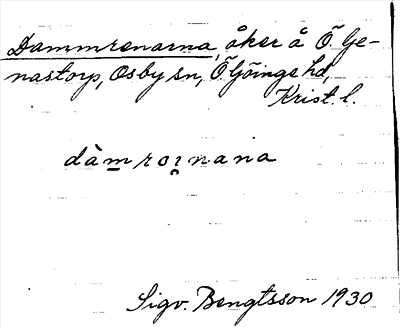 Dammrenarna, åker å Ö. Ge-
nastorp, Osby sn, Ö Göinge hd,
Krist. l.
dàm̲roi̯nana
Sigv. Bengtsson 1930